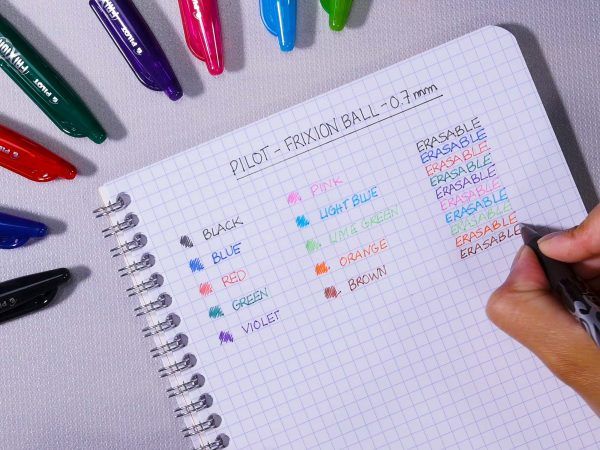 PILOT
FRIXION
PILOT
PILOT
PILOT - FRIXION BALL - 0.7mm
BLACK
BLUE
RED
GREEN
VIOLET
PINK
LIGHT BLUE
LIME GREEN
ORANGE
BROWN
ERASABLE
ERASABLE
ERASABLE
ERASABLE
ERASABLE
ERASABLE
ERASABLE
ERASABLE
ERASABLE
ERASABLE